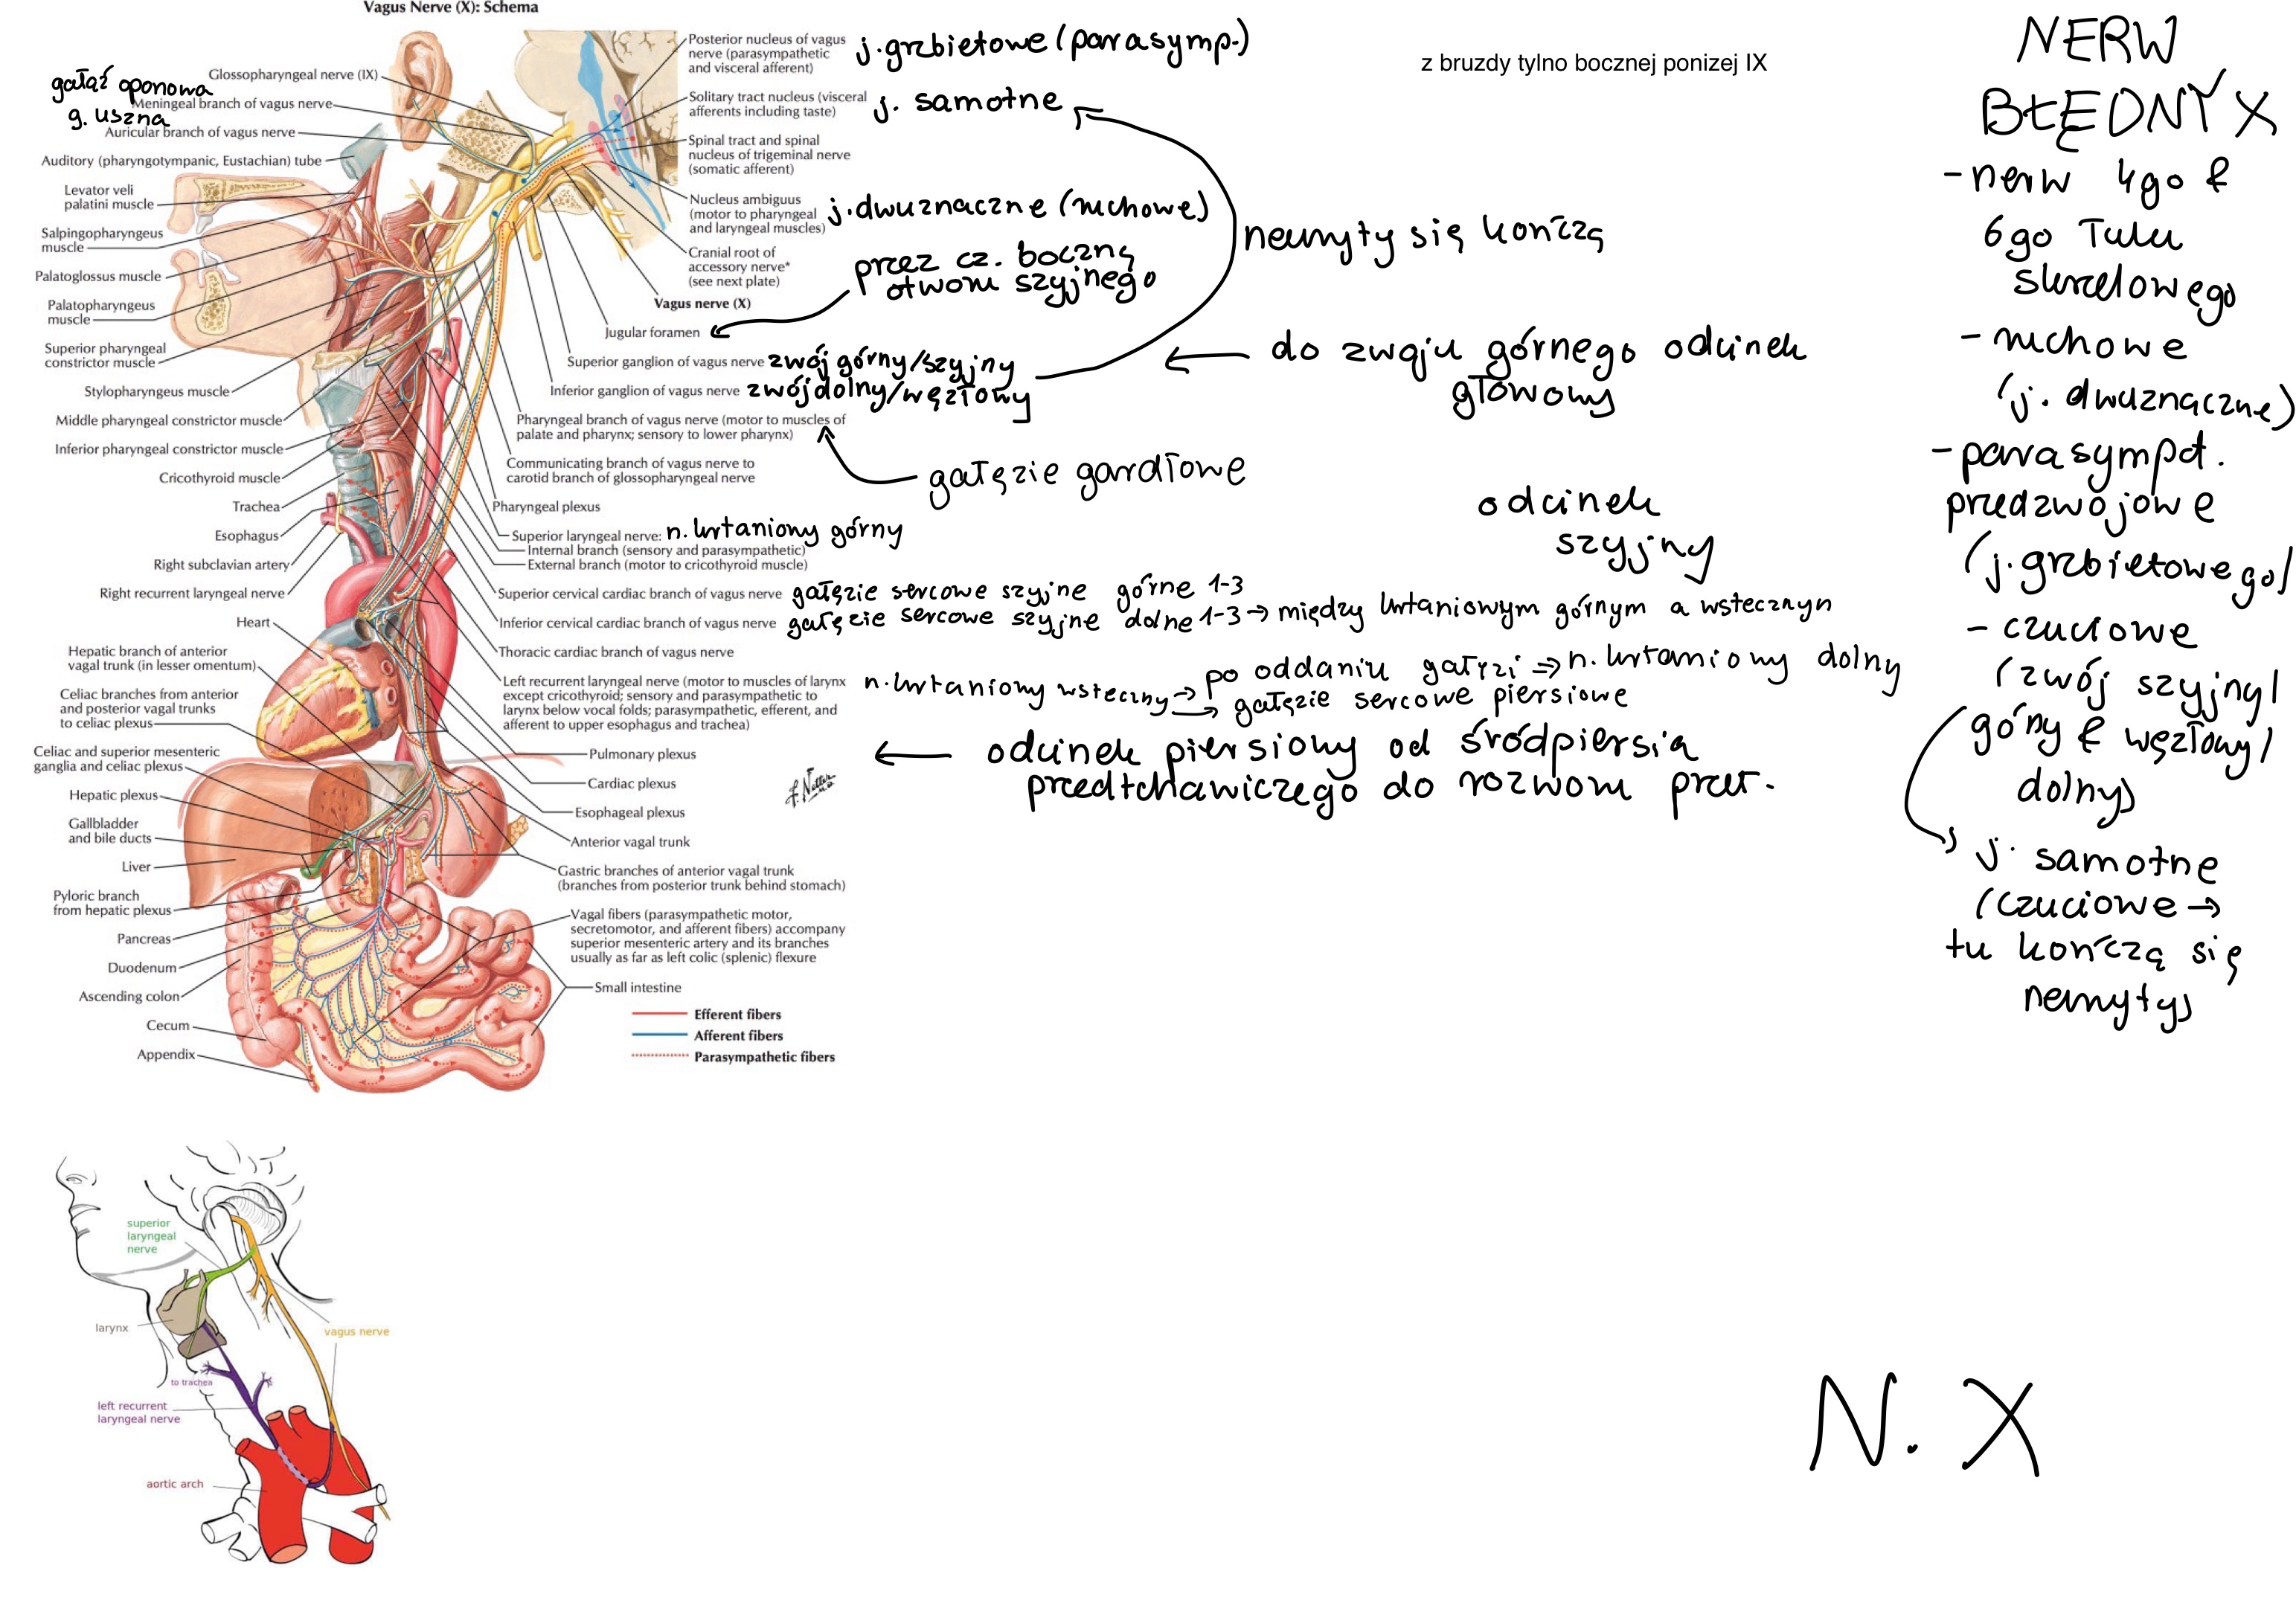 Vagus Nerve (X): Schema
gałąź oponowa
g. uszna
Glossopharyngeal nerve (IX)
Meningeal branch of vagus nerve
Auricular branch of vagus nerve
Auditory (pharyngotympanic, Eustachian) tube
Levator veli
palatini muscle
Salpingopharyngeus
muscle
Palatoglossus muscle
Palatopharyngeus
muscle
Superior pharyngeal
constrictor muscle
Stylopharyngeus muscle
Middle pharyngeal constrictor muscle
Inferior pharyngeal constrictor muscle
Cricothyroid muscle
Trachea
Esophagus
Right subclavian artery
Right recurrent laryngeal nerve
Heart
Hepatic branch of anterior
vagal trunk (in lesser omentum)
Celiac branches from anterior
and posterior vagal trunks
to celiac plexus
Celiac and superior mesenteric
ganglia and celiac plexus
Hepatic plexus
Gallbladder
and bile ducts
Liver
Pyloric branch
from hepatic plexus
Pancreas
Duodenum
Ascending colon
Cecum
Appendix
Posterior nucleus of vagus
nerve (parasympathetic
and visceral afferent)
j. grzbietowe (parasymp.)
Solitary tract nucleus (visceral
afferents including taste)
j. samotne
Spinal tract and spinal
nucleus of trigeminal nerve
(somatic afferent)
Nucleus ambiguus
(motor to pharyngeal
and laryngeal muscles)
j. dwuznaczne (ruchowe)
Cranial root of
accessory nerve*
(see next plate)
Vagus nerve (X)
przez cz. boczną
otworu szyjnego
Jugular foramen
Superior ganglion of vagus nerve zwój górny/szyjny
Inferior ganglion of vagus nerve zwój dolny/węzłowy
neuryty się kończą
do zwoju górnego odcinek
głowowy
Pharyngeal branch of vagus nerve (motor to muscles of
palate and pharynx; sensory to lower pharynx)
Communicating branch of vagus nerve to
carotid branch of glossopharyngeal nerve
gałęzie gardłowe
Pharyngeal plexus
odcinek
szyjny
Superior laryngeal nerve: n. krtaniowy górny
Internal branch (sensory and parasympathetic)
External branch (motor to cricothyroid muscle)
Superior cervical cardiac branch of vagus nerve gałęzie sercowe szyjne górne 1-3
Inferior cervical cardiac branch of vagus nerve gałęzie sercowe szyjne dolne 1-3 → między krtaniowym górnym a wstecznym
Thoracic cardiac branch of vagus nerve
Left recurrent laryngeal nerve (motor to muscles of larynx
except cricothyroid; sensory and parasympathetic to
larynx below vocal folds; parasympathetic, efferent, and
afferent to upper esophagus and trachea)
n. krtaniowy wsteczny → po oddaniu gałęzi ⇒ n. krtaniowy dolny
→ gałęzie sercowe piersiowe
Pulmonary plexus
← odcinek piersiowy od śródpiersia
przedtchawiczego do rozworu przeł.
Cardiac plexus
Esophageal plexus
Anterior vagal trunk
Gastric branches of anterior vagal trunk
(branches from posterior trunk behind stomach)
Vagal fibers (parasympathetic motor,
secretomotor, and afferent fibers) accompany
superior mesenteric artery and its branches
usually as far as left colic (splenic) flexure
Small intestine
Efferent fibers
Afferent fibers
Parasympathetic fibers
z bruzdy tylno bocznej ponizej IX
NERW
BŁĘDNY X
- nerw 4go &
6go łuku
skrzelowego
- ruchowe
(j. dwuznaczne)
- parasympat.
przedzwojowe
(j. grzbietowego)
- czuciowe
(zwój szyjny/
górny & węzłowy/
dolny)
j. samotne
(czuciowe →
tu kończą się
neuryty)
superior
laryngeal
nerve
larynx
vagus nerve
to trachea
left recurrent
laryngeal nerve
aortic arch
N. X